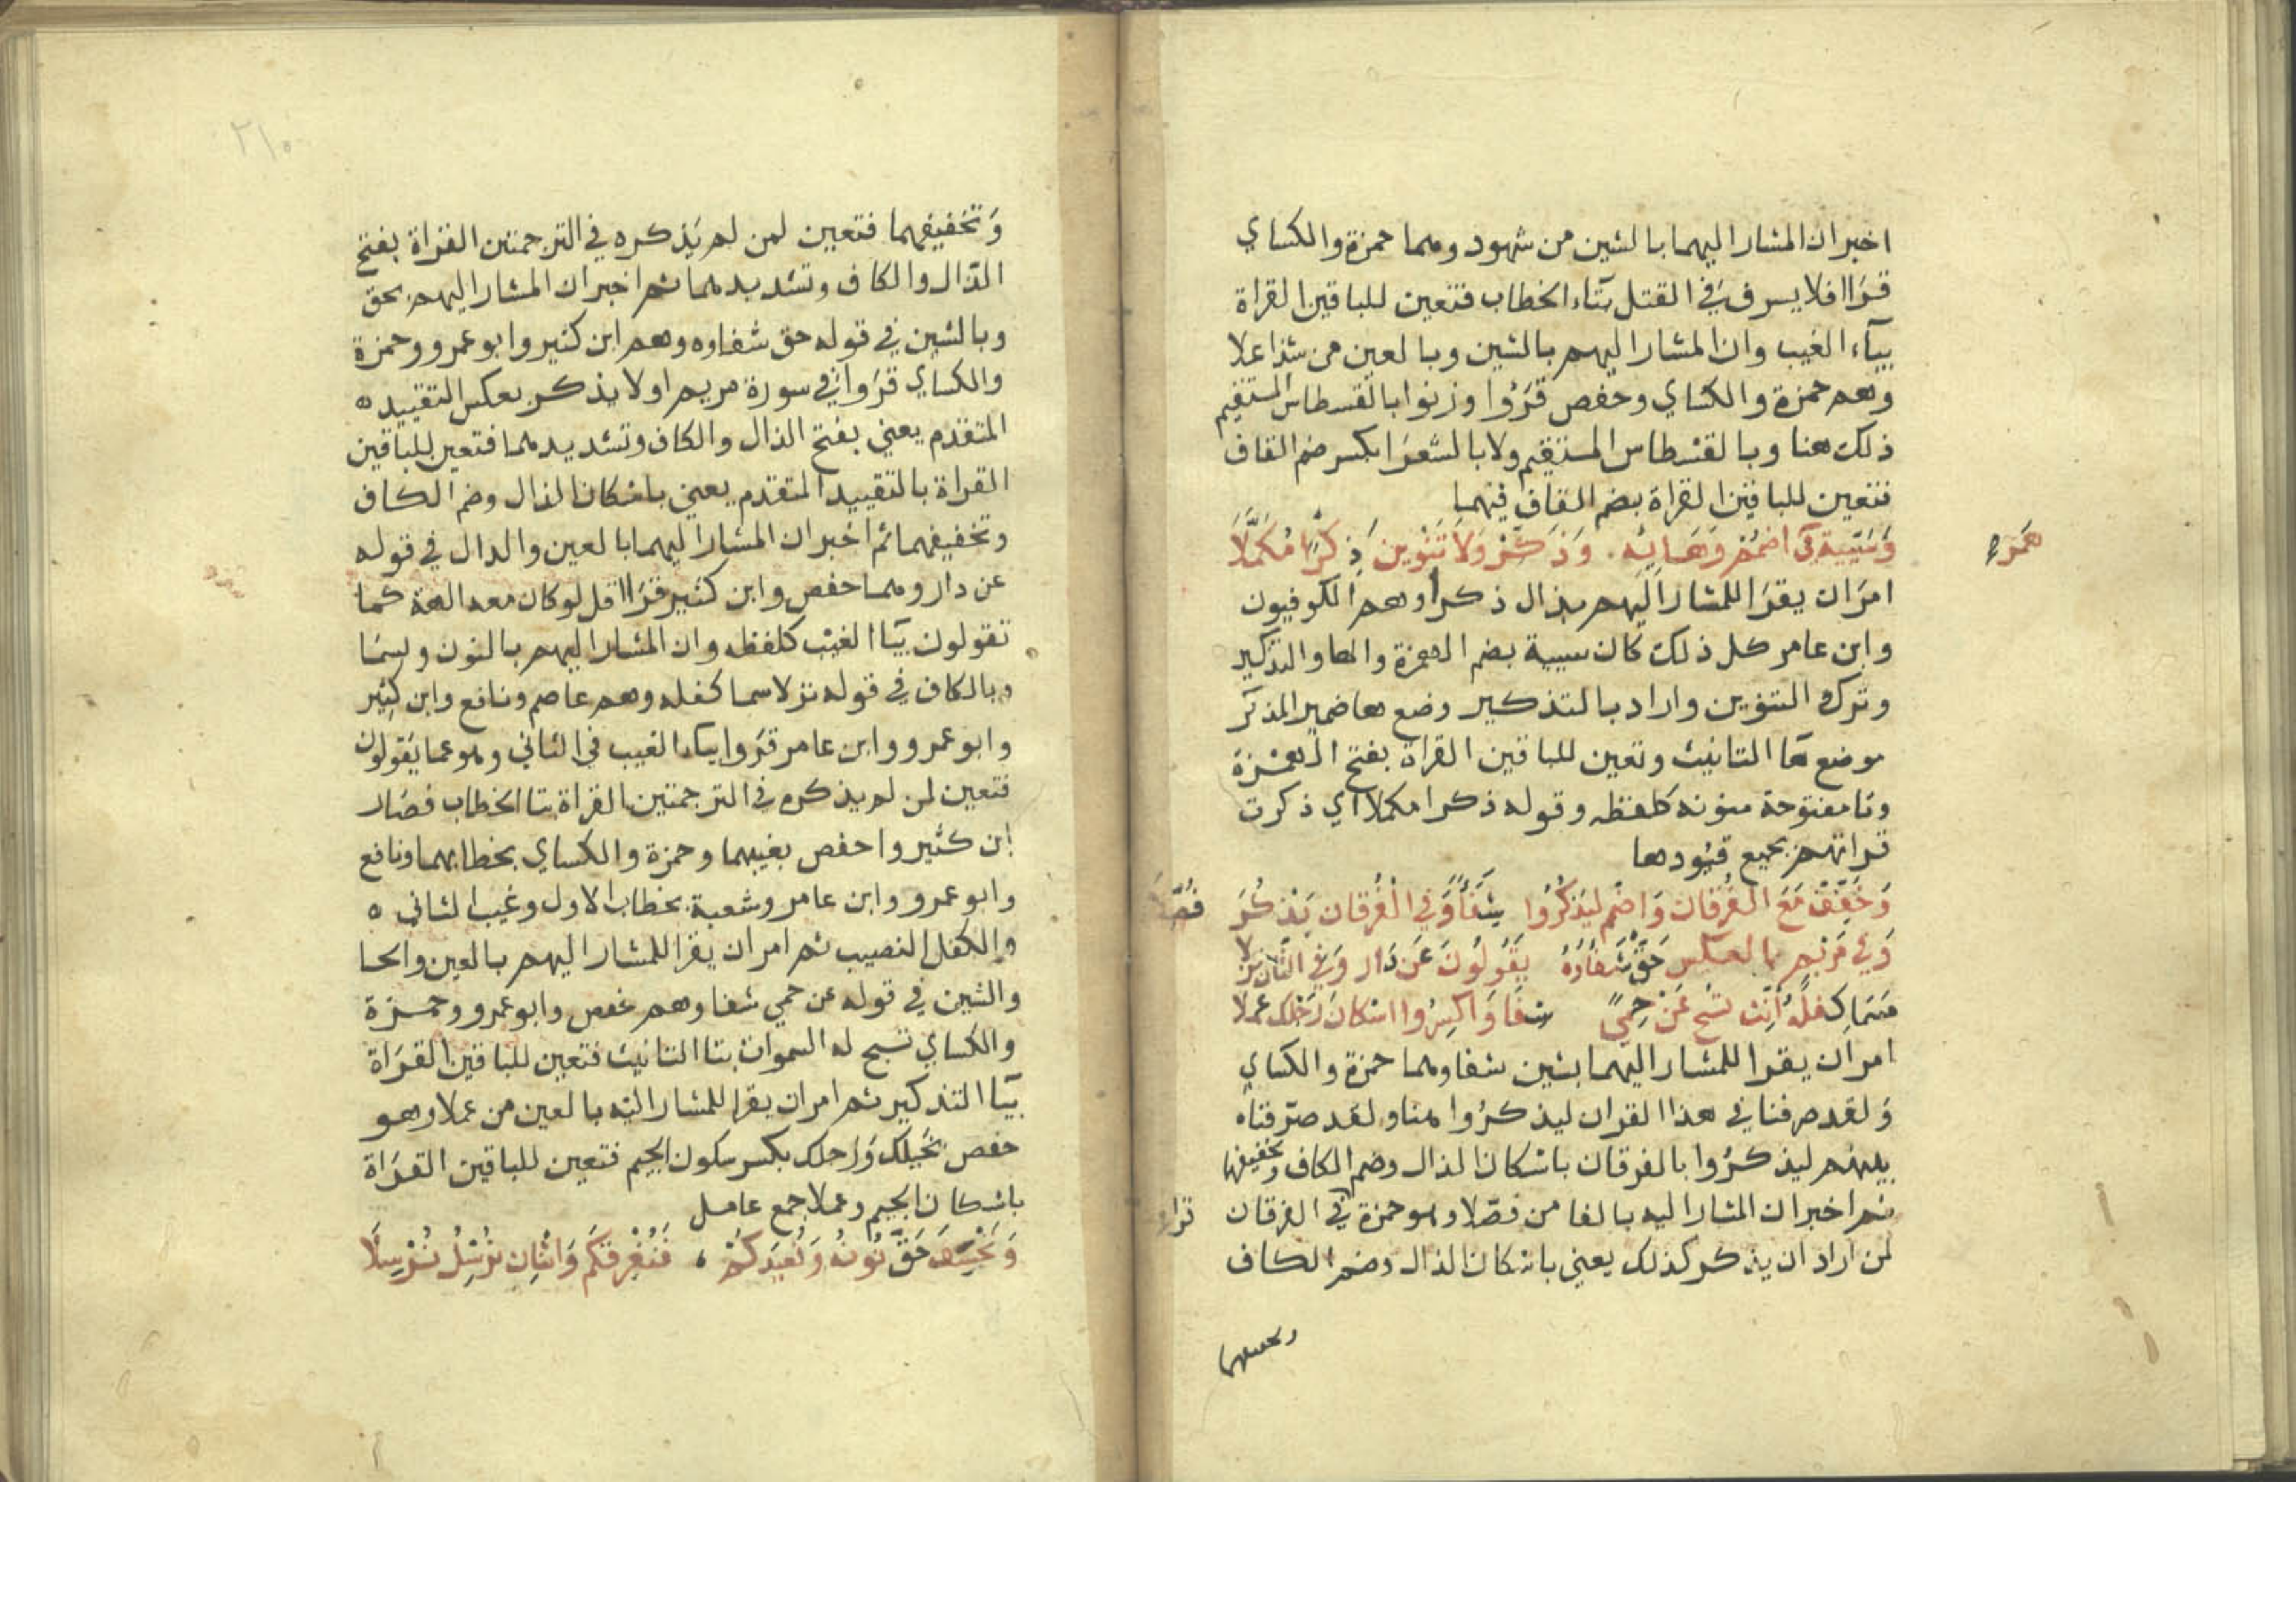 اخبر ان المشار اليهما بالشين من شهود وهما حمزة والكساي
قرا افلا يسرف في القتل بتاء الخطاب فتعين للباقين القراة
بيآء الغيب وان المشار اليهم بالشين وبالعين من شذا علا
وهم حمزة والكساي وحفص قرؤا وزنوا بالقسطاس المستقيم
ذلك هنا وبالقسطاس المستقيم ولا بالشعرا بكسر ضم القاف
فتعين للباقين القراة بضم القاف فيهما
وَسَيِّيةً في اضمُم وَهَايِه . وَذَكِّرْ وَلَا تَنْوِين ذِكْرًا مُكَمَّلَا
همزه
امرَ ان يقرَا للمشار اليهم بذال ذكرا وهم الكوفيون
وابن عامر كل ذلك كان سيية بضم الهمزة والها والتذكير
وترك التنوين واراد بالتذكير وضع ها ضمير المذكر
موضع هَا التانيث وتعين للباقين القراة بفتح الهمزة
وتا مفتوحة منونه كلفظه وقوله ذكرا مكملا اي ذكرت
قراتهم بجميع قيودها
وَخَفِّفْ مَعَ الفُرقان وَاضْمم ليذكُرُوا شِفَآءً وَفي الْفُرقان يَذْكُرُ فُصِّلَا
وَفي مَرْيَم بالعكس حَقٌّ شَفاؤُهُ يَقُولُونَ عَن دَار وَفي الثَّان نزلا
سَمَا كِفلُهُ أَنِّث تسَبِّح عَنْ حِمًى شفَا وَاكسِرُوا اسْكانَ رَجْلك عملا
امر ان يقرا للمشار اليهما بشين شفا وهما حمزة والكساي
وَلقد صرفنا في هذا القران ليذكرُوا هنا ولقد صرّفناه
بينهم ليذكرُوا بالفرقان باسكان الذال وضم الكاف وتخفيفها
ثم اخبر ان المشار اليه بالفا من فصّلا وهو حمزة في الفرقان قراء
لمن اراد ان يذكر كذلك يعني باسكان الذال وضم الكاف
وتخفيفهما
٢١٠
وَتخفيفهما فتعين لمن لم يَذكره في الترجمتين القراة بفتح
الذال والكاف وتشديدهما ثم اخبر ان المشار اليهم بحق
وبالشين في قوله حق شفاوه وهم ابن كثير وابو عمرو وحمزة
والكساي قرَوا في سورة مريم اولا يذكر بعكس التقييد
المتقدم يعني بفتح الذال والكاف وتشديدهما فتعين للباقين
القراة بالتقييد المتقدم يعني باسكان الذال وضم الكاف
وتخفيفهما ثم اخبر ان المشار اليهما بالعين والدال في قوله
عن دار وهما حفص وابن كثير قرَا اقل لو كان معه الهة كما
تقولون بيَا الغيب كلفظه وان المشار اليهم بالنون وبسمَا
وبالكاف في قوله نزلا سما كفله وهم عاصم ونافع وابن كثير
وابو عمرو وابن عامر قرَوا بياء الغيب في الثاني وهو عما يقولون
فتعين لمن لم يذكره في الترجمتين القراة بتا الخطاب فصَار
ابن كثير واحفص بغيبهما وحمزة والكساي بخطابهما ونافع
وابو عمرو وابن عامر وشعبة بخطاب الاول وغيب الثاني
والكفل النصيب ثم امر ان يقرا للمشار اليهم بالعين والحا
والشين في قوله عن حمي شفا وهم حفص وابو عمرو وحمزة
والكساي تسبح له السموات بتا التانيث فتعين للباقين القرَاة
بيَا التذكير ثم امر ان يقرا للمشار اليه بالعين من عملا وهو
حفص بخَيلك وَرجلك بكسر سكون الجيم فتعين للباقين القرَاة
باسكان الجيم وعملا جمع عامل
وَيَخْسِفَ حَقٌّ نُونُهُ وَنُعيدكُمْ ، فَنُغْرِقَكُم وَاثْنَانِ نُرْسِلُ نُرْسِلَا